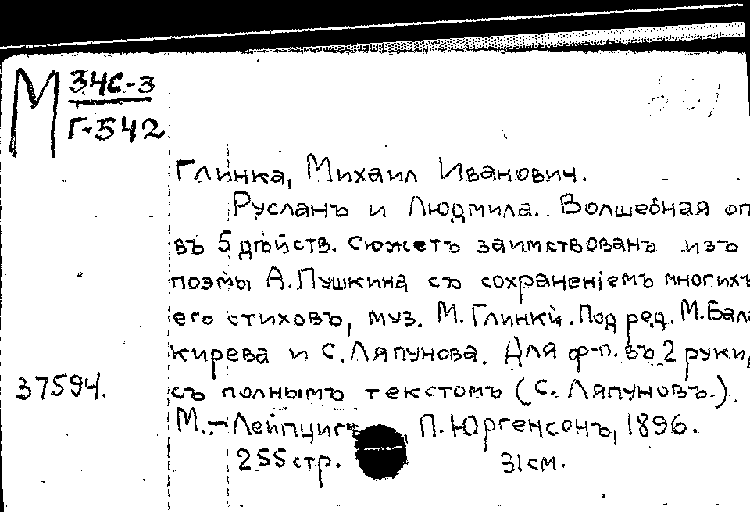 М 34С-3
Г-542
Глинка, Михаил Иванович.
Русланъ и Людмила. Волшебная оп
въ 5 дѣйств. Сюжетъ заимствованъ изъ
поэмы А. Пушкина съ сохраненіемъ многихъ
его стиховъ, муз. М. Глинки. Под ред. М. Бала
кирева и С. Ляпунова. Для ф-п. въ 2 руки,
37594.
съ полнымъ текстомъ (С. Ляпуновъ.).
М.-Лейпцигъ П. Юргенсонъ, 1896.
255 стр. 31 см.